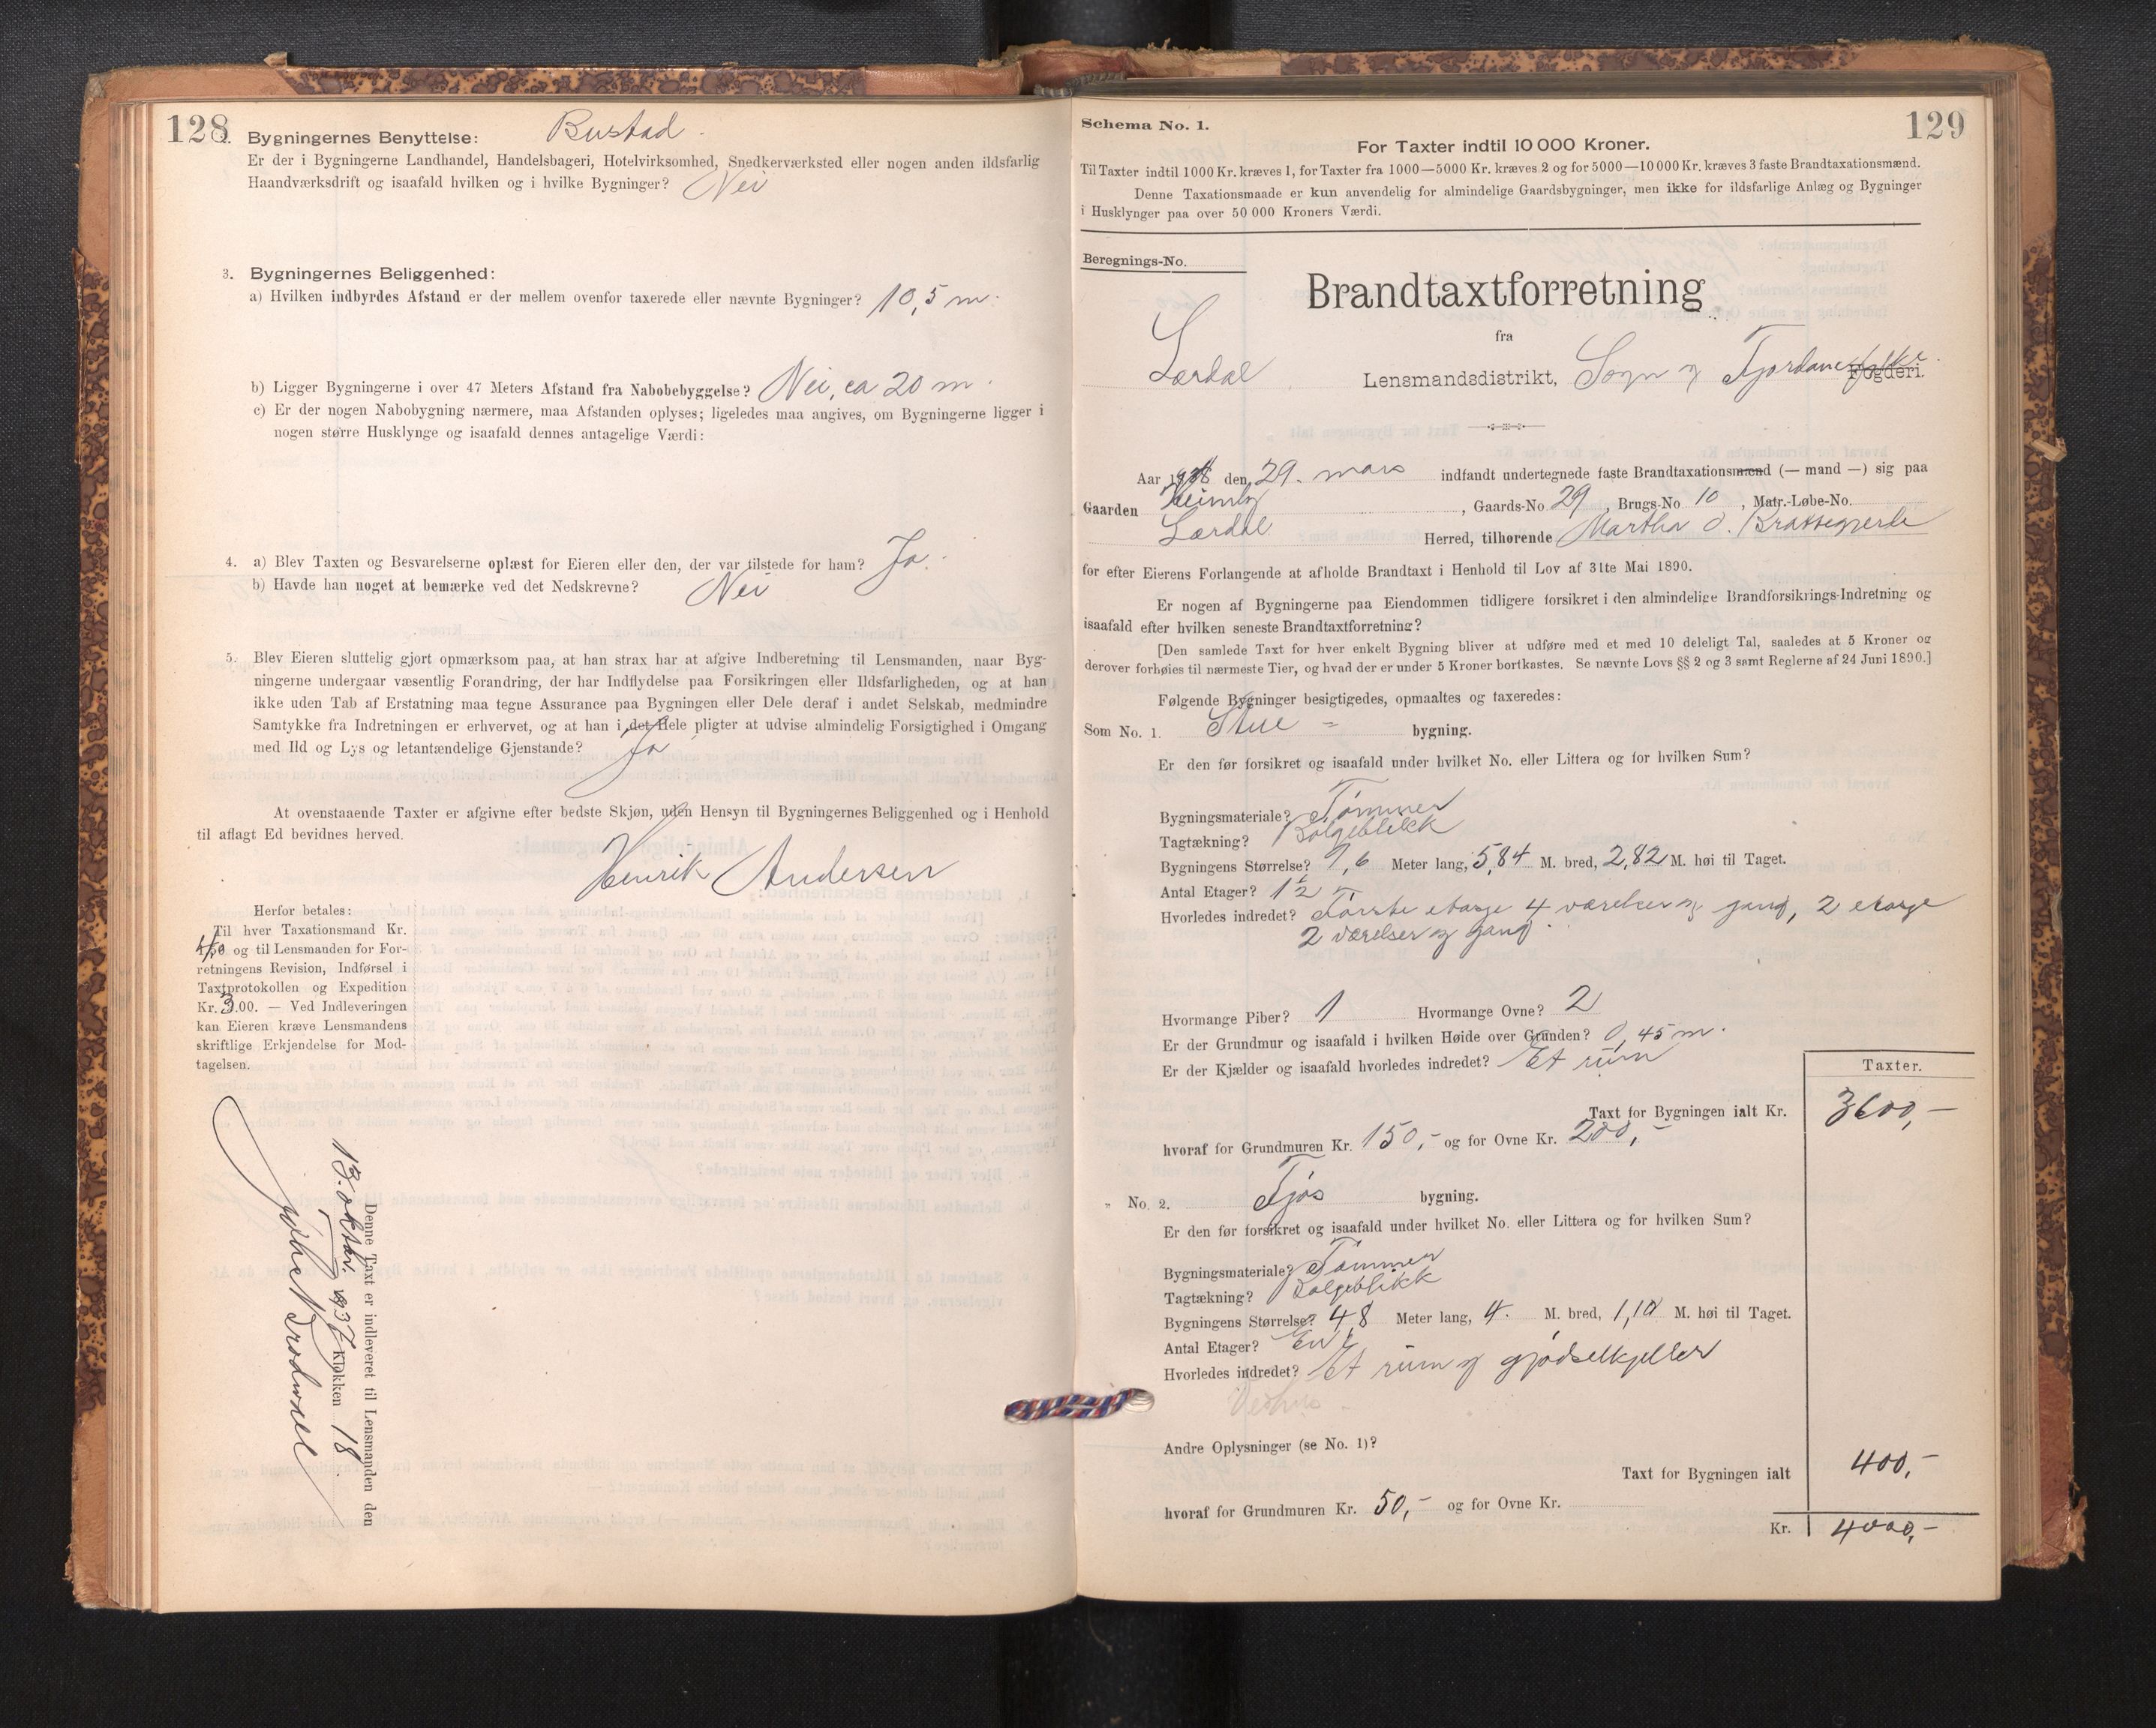 128
2. Bygningernes Benyttelse: Bustad.
Er der i Bygningerne Landhandel, Handelsbageri, Hotelvirksomhed, Snedkerværksted eller nogen anden ildsfarlig
Haandværksdrift og isaafald hvilken og i hvilke Bygninger? Nei
3. Bygningernes Beliggenhed:
a) Hvilken indbyrdes Afstand er der mellem ovenfor taxerede eller nævnte Bygninger? 10,5 m.
b) Ligger Bygningerne i over 47 Meters Afstand fra Nabobebyggelse? Nei, ca 20 m.
c) Er der nogen Nabobygning nærmere, maa Afstanden oplyses; ligeledes maa angives, om Bygningerne ligger i
nogen større Husklynge og isaafald dennes antagelige Værdi:
4. a) Blev Taxten og Besvarelserne oplæst for Eieren eller den, der var tilstede for ham? Ja.
b) Havde han noget at bemærke ved det Nedskrevne? Nei
5. Blev Eieren sluttelig gjort opmærksom paa, at han strax har at afgive Indberetning til Lensmanden, naar Byg-
ningerne undergaar væsentlig Forandring, der har Indflydelse paa Forsikringen eller Ildsfarligheden, og at han
ikke uden Tab af Erstatning maa tegne Assurance paa Bygningen eller Dele deraf i andet Selskab, medmindre
Samtykke fra Indretningen er erhvervet, og at han i det Hele pligter at udvise almindelig Forsigtighed i Omgang
med Ild og Lys og letantændelige Gjenstande? Ja
At ovenstaaende Taxter er afgivne efter bedste Skjøn, uden Hensyn til Bygningernes Beliggenhed og i Henhold
til aflagt Ed bevidnes herved.
Henrik Andersen
Herfor betales:
Til hver Taxationsmand Kr.
4,50 og til Lensmanden for For-
retningens Revision, Indførsel i
Taxtprotokollen og Expedition
Kr. 3.00. — Ved Indleveringen
kan Eieren kræve Lensmandens
skriftlige Erkjendelse for Mod-
tagelsen.
Denne Taxt er indleveret til Lensmanden den
13. oktbr. 1937 Klokken 18
129
Schema No. 1.
For Taxter indtil 10 000 Kroner.
Til Taxter indtil 1000 Kr. kræves 1, for Taxter fra 1000—5000 Kr. kræves 2 og for 5000—10 000 Kr. kræves 3 faste Brandtaxationsmænd.
Denne Taxationsmaade er kun anvendelig for almindelige Gaardsbygninger, men ikke for ildsfarlige Anlæg og Bygninger
i Husklynger paa over 50 000 Kroners Værdi.
Beregnings-No.
Brandtaxtforretning
fra
Lærdal Lensmandsdistrikt, Sogn og Fjordane fylke. Fogderi.
Aar den 29. mars indfandt undertegnede faste Brandtaxationsmænd (— mand —) sig paa
Gaarden Heimly, Gaards-No. 29, Brugs-No. 10, Matr.-Løbe-No.
Lærdal Herred, tilhørende Martha O.
for efter Eierens Forlangende at afholde Brandtaxt i Henhold til Lov af 31te Mai 1890.
Er nogen af Bygningerne paa Eiendommen tidligere forsikret i den almindelige Brandforsikrings-Indretning og
isaafald efter hvilken seneste Brandtaxtforretning?
[Den samlede Taxt for hver enkelt Bygning bliver at udføre med et med 10 deleligt Tal, saaledes at 5 Kroner og
derover forhøies til nærmeste Tier, og hvad der er under 5 Kroner bortkastes. Se nævnte Lovs §§ 2 og 3 samt Reglerne af 24 Juni 1890.]
Følgende Bygninger besigtigedes, opmaaltes og taxeredes:
Som No. 1. Stue = bygning.
Er den før forsikret og isaafald under hvilket No. eller Littera og for hvilken Sum?
Bygningsmateriale? Tømmer
Tagtækning? Bølgeblikk
Bygningens Størrelse? 7,6 Meter lang, 5,84 M. bred, 2,82 M. høi til Taget.
Antal Etager? 1½
Hvorledes indredet? Første etasje 4 værelser og gang, 2 etasje
2 værelser og gang.
Hvormange Piber? 1 Hvormange Ovne? 2
Er der Grundmur og isaafald i hvilken Høide over Grunden? 0,45 m.
Er der Kjælder og isaafald hvorledes indredet? Et rum
Taxter.
Taxt for Bygningen ialt Kr. 3600,–
hvoraf for Grundmuren Kr. 150,– og for Ovne Kr. 200,–
„ No. 2. Fjøs bygning.
Er den før forsikret og isaafald under hvilket No. eller Littera og for hvilken Sum?
Bygningsmateriale? Tømmer
Tagtækning? Bølgeblikk
Bygningens Størrelse? 4,8 Meter lang, 4. M. bred, 1,10 M. høi til Taget.
Antal Etager? En
Hvorledes indredet? Et rum og gjødselkjeller
Vedhus
Andre Oplysninger (se No. 1)?
Taxt for Bygningen ialt 400,–
hvoraf for Grundmuren Kr. 50,– og for Ovne Kr.
Kr. 4000,–